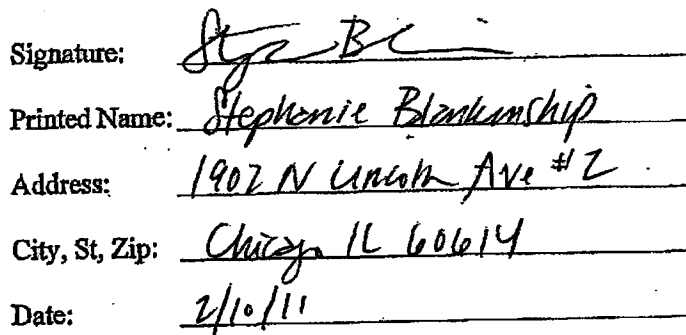 Signature:
Printed Name: Stephanie Blankenship
Address: 1902 N Lincoln Ave #2
City, St, Zip: Chicago IL 60614
Date: 2/10/11